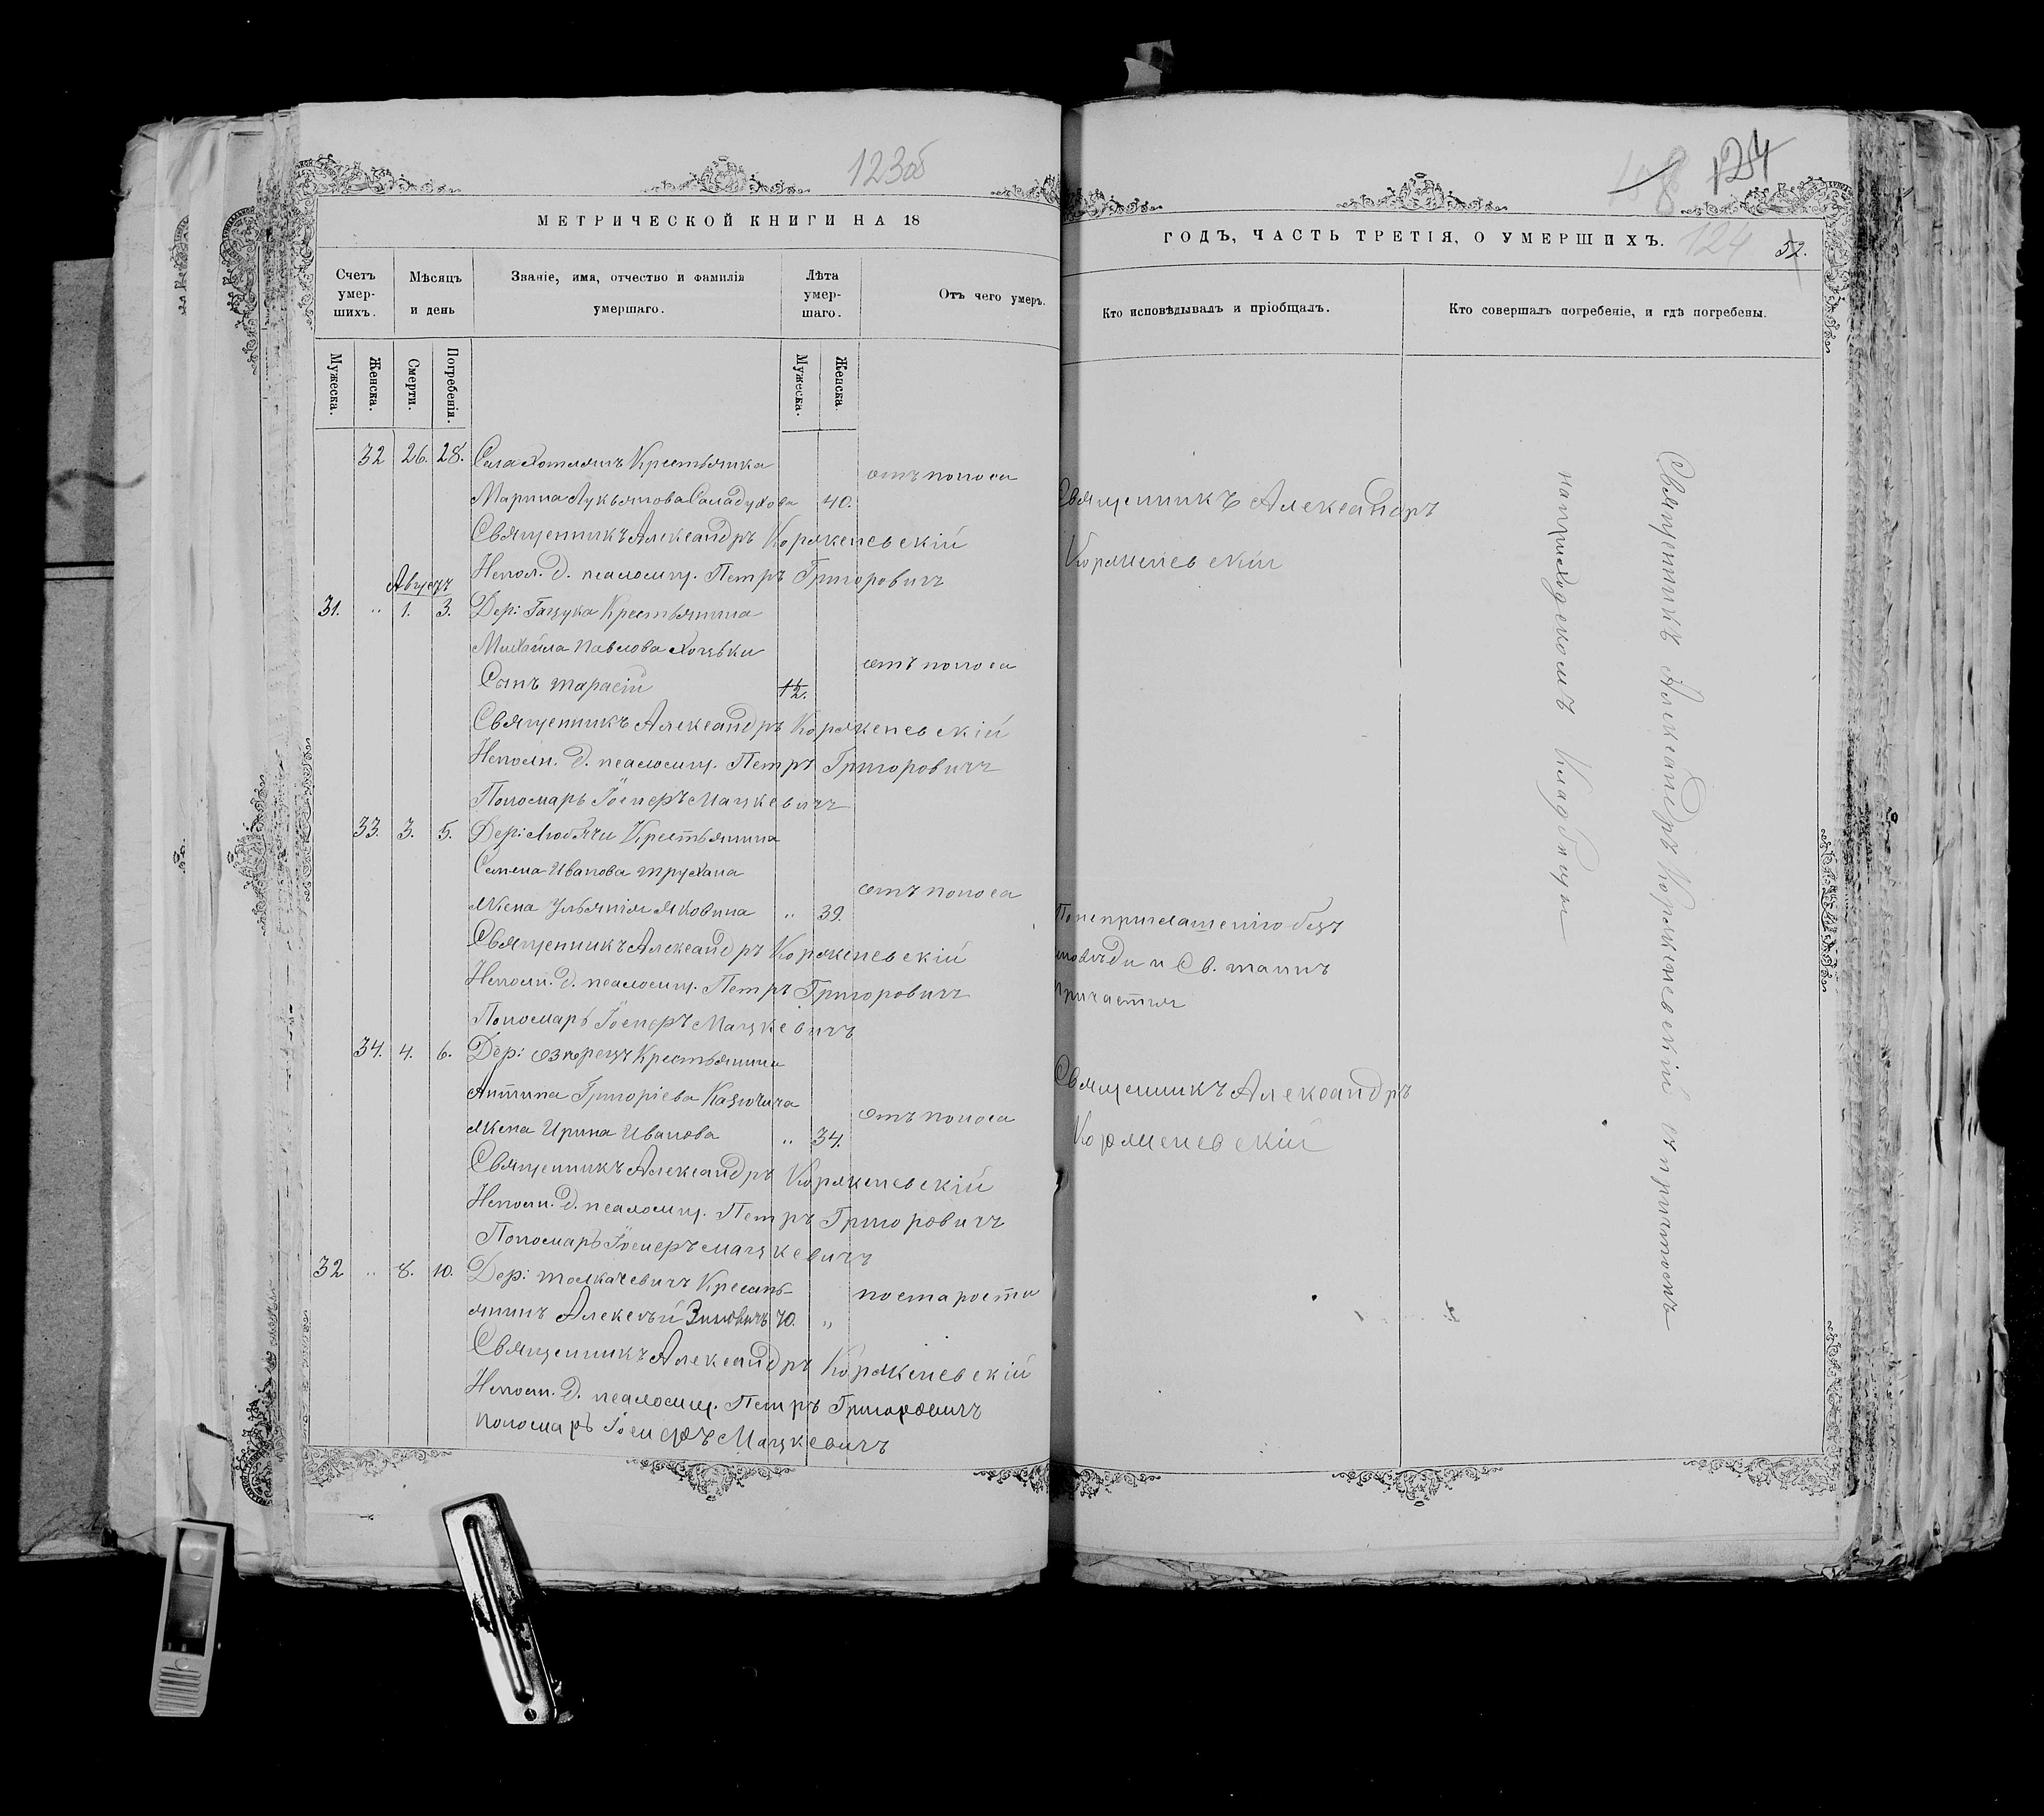 123об
МЕТРИЧЕСКОЙ КНИГИ НА 18
Счетъ умершихъ.
Мѣсяцъ и день
Званіе, имя, отчество и фамилія умершаго.
Лѣта умершаго.
Отъ чего умеръ.
Мужеска.
Женска.
Смерти.
Погребенія.
Мужеска.
Женска.
32 26. 28. Села Хотляшъ Крестьянка
отъ поноса
Марина Лукьянова 40.
Священникъ Александръ Коржeневскій
Испол. д. псаломщ. Петръ Григоровичъ
Августъ
31. " 1. 3. Дер: Гацука Крестьянина
Михаила Павлова
отъ поноса
Сынъ Тарасій 1½.
Священникъ Александръ Корженевскій
Исполн. д. псаломщ. Петръ Григоровичъ
Пономарь Іосифъ Мацкевичъ
33. 3. 5. Дер: Любячи Крестьянина
Семена Иванова Трухана
отъ поноса
жена Ульянія Яковина " 39.
Священникъ Александръ Корженевскій
Исполн. д. псаломщ. Петръ Григоровичъ
Пономарь Іосифъ Мацкевичъ
34. 4. 6. Дер: Озерецъ Крестьянина
Антипа Григоріева Казючица
отъ поноса
жена Ирина Иванова " 34.
Священникъ Александръ Корженевскій
Исполн. д. псаломщ. Петръ Григоровичъ
Пономарь Іосифъ Мацкевичъ
32 " 8. 10. Дер: Толкачевичъ Кресть-
по старости
янинъ Алексѣй Зиновичъ 70. "
Священникъ Александръ Корженевскій
Исполн. д. псаломщ. Петръ Григоровичъ
Пономарь Іосифъ Мацкевичъ
124
ГОДЪ, ЧАСТЬ ТРЕТІЯ, О УМЕРШИХЪ.
124
52.
Кто исповѣдывалъ и пріобщалъ.
Кто совершалъ погребеніе, и гдѣ погребены.
Священникъ Александръ
Корженевскій
По неприглашенію безъ
исповѣди и Св. таинъ
причастія
Священникъ Александръ
Корженевскій
Священникъ Александръ Корженевскій съ причтомъ
на приходскомъ кладбищѣ